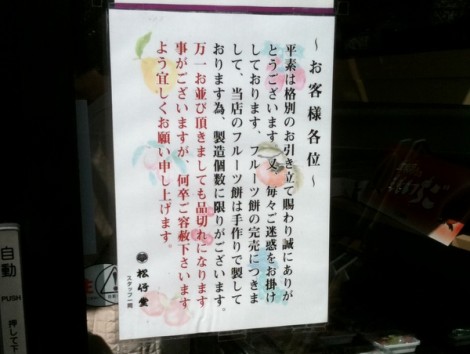 ～お客様各位～
平素は格別のお引き立て賜わり誠にありが
とうございます。又、毎々ご迷惑をお掛け
しております、フルーツ餅の完売につきま
して、当店のフルーツ餅は手作りで製して
おります為、製造個数に限りがございます。
万一お並び頂きましても品切れになります
事がございますが、何卒ご容赦下さいます
よう宜しくお願い申し上げます。
松竹堂
スタッフ一同
自動
PUSH
押して下